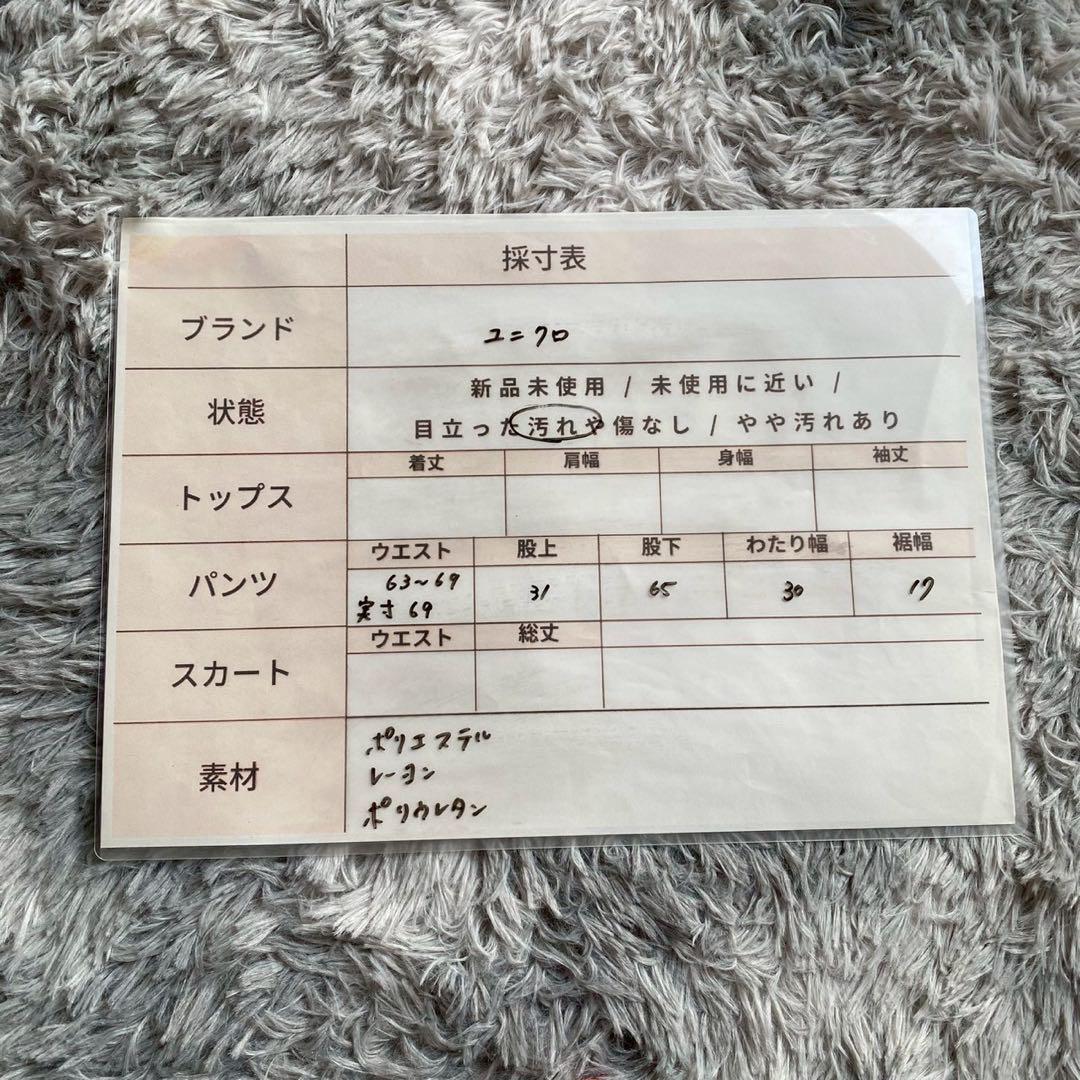 採寸表
ブランド
ユニクロ
状態
新品未使用 / 未使用に近い /
目立った汚れや傷なし / やや汚れあり
トップス
着丈 肩幅 身幅 袖丈
パンツ
ウエスト 股上 股下 わたり幅 裾幅
63~69
実寸 69 31 65 30 17
スカート
ウエスト 総丈
素材
ポリエステル
レーヨン
ポリウレタン